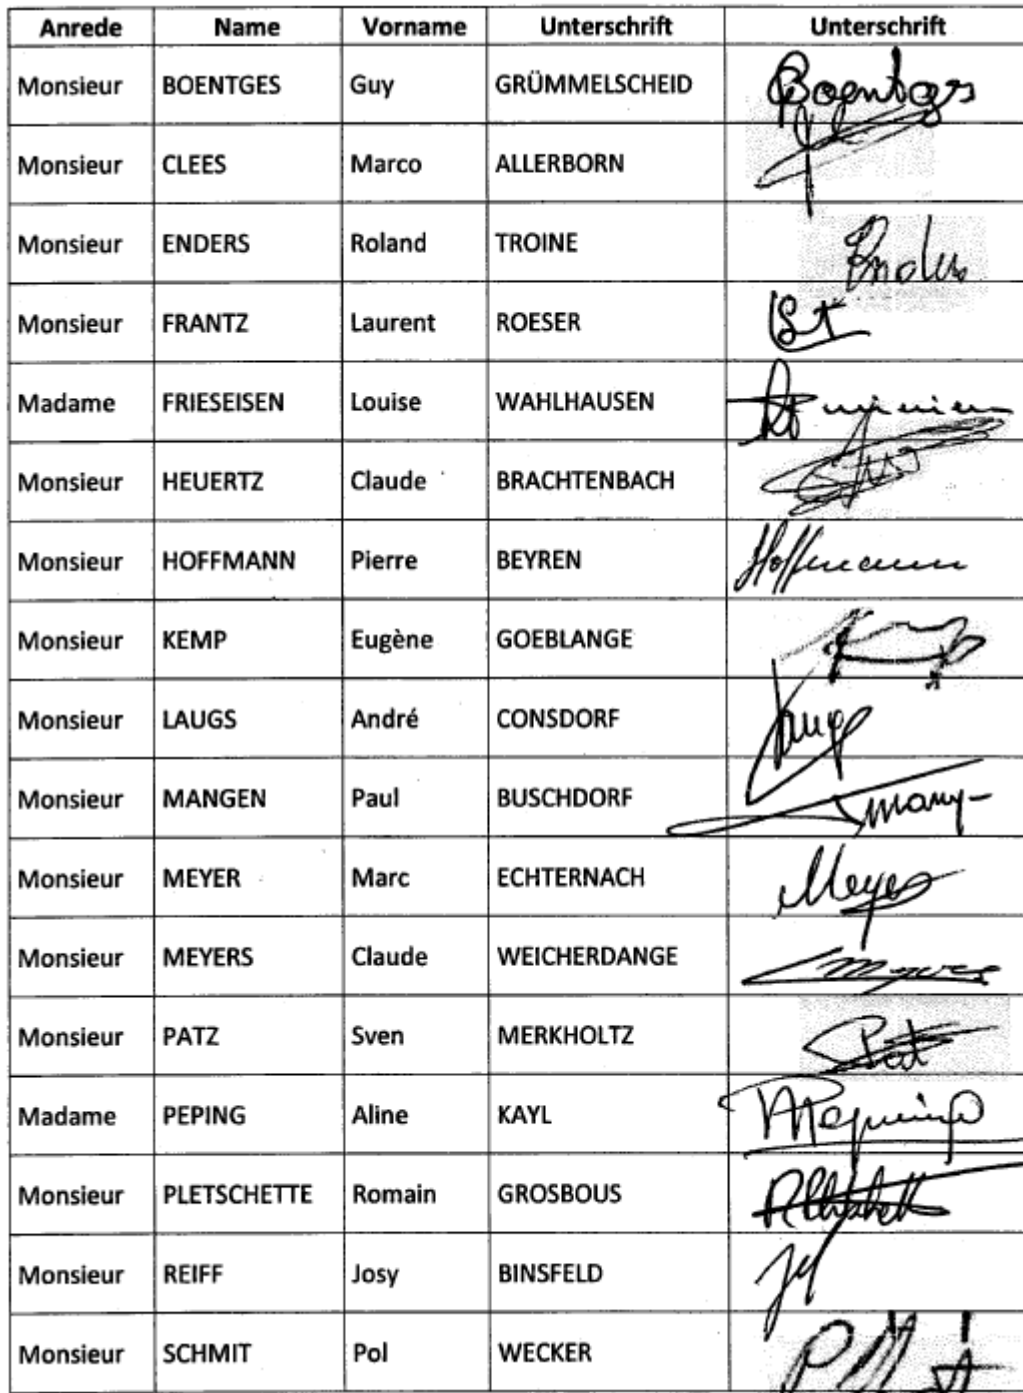 Anrede Name Vorname Unterschrift Unterschrift
Monsieur BOENTGES Guy GRÜMMELSCHEID Boentges
Monsieur CLEES Marco ALLERBORN
Monsieur ENDERS Roland TROINE Enders
Monsieur FRANTZ Laurent ROESER
Madame FRIESEISEN Louise WAHLHAUSEN
Monsieur HEUERTZ Claude BRACHTENBACH
Monsieur HOFFMANN Pierre BEYREN Hoffmann
Monsieur KEMP Eugène GOEBLANGE
Monsieur LAUGS André CONSDORF
Monsieur MANGEN Paul BUSCHDORF
Monsieur MEYER Marc ECHTERNACH Meyer
Monsieur MEYERS Claude WEICHERDANGE Meyers
Monsieur PATZ Sven MERKHOLTZ
Madame PEPING Aline KAYL
Monsieur PLETSCHETTE Romain GROSBOUS
Monsieur REIFF Josy BINSFELD
Monsieur SCHMIT Pol WECKER